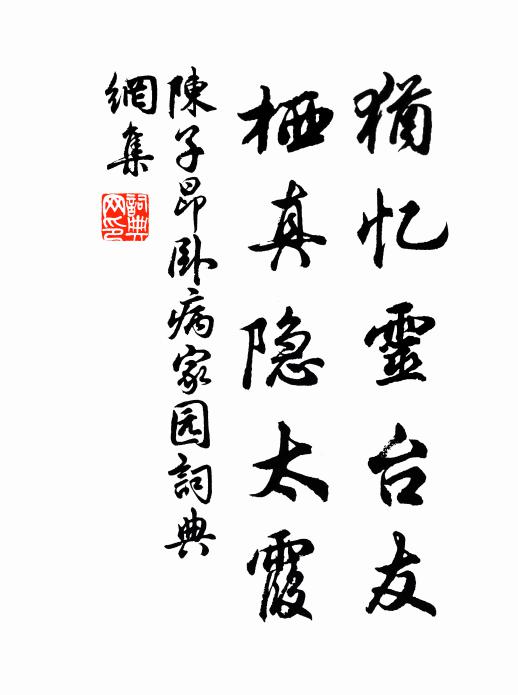 猶忆靈台友
栖真隐太霞
陳子昂卧病家园詞典
網集
詞典网印